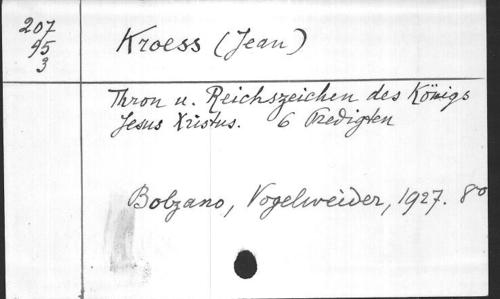 207
95
3
Kroess (Jean)
Thron u. Reichszeichen des Königs
Jesus Xristus. 6 Predigten
Bolzano, Vogelweider, 1927. 8º